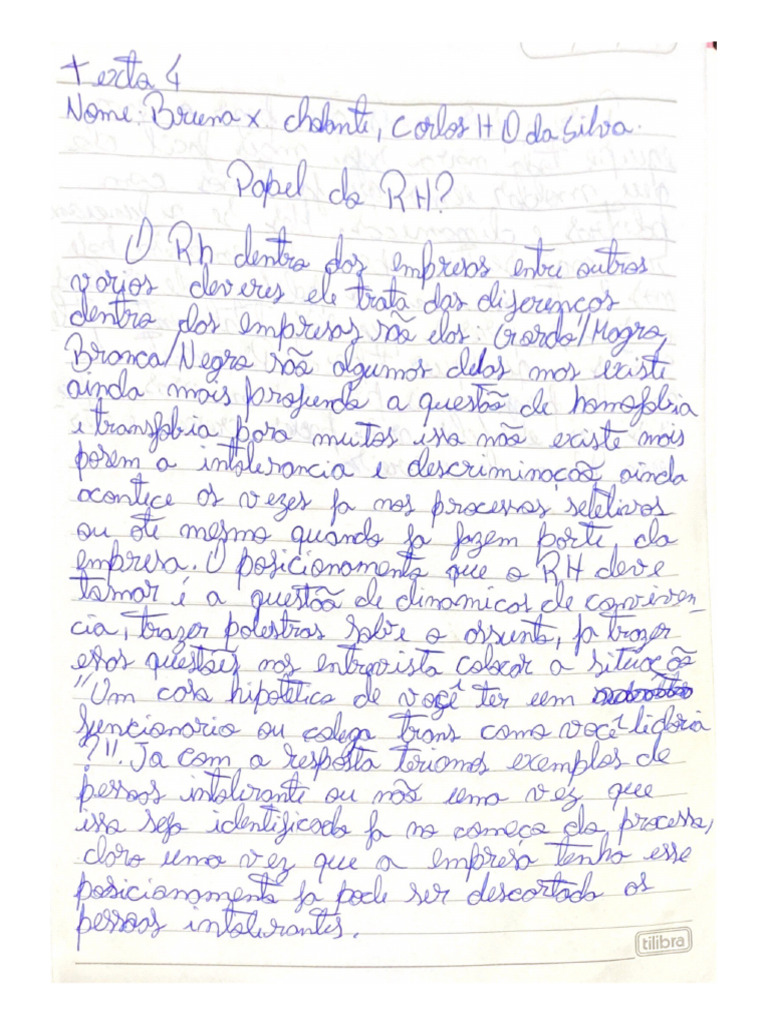 Texto 4
Nome: Bruna X. Cholante, Carlos H O da Silva.
Papel do RH?
O Rh dentro das empresas entre outros
varios deveres ele trata das diferenças
dentro das empresas são elas: Gorda/Magra,
Branca/Negra são algumas delas mas existe
ainda mais profundo a questão de homofobia
e transfobia, para muitos isso não existe mais
porem a intolerancia e descriminação, ainda
acontece as vezes ja nos processos seletivos
ou até mesmo quando ja fazem parte da
empresa. O posicionamento que o RH deve
tomar é a questão de dinamicas de conviven-
cia, trazer palestras sobre o assunto, ja trazer
essas questões nas entrevista colocar a situação
"Um caso hipotetico de você ter um
funcionario ou colega trans como você lidaria
?". Ja com a resposta teriamos exemplos de
pessoas intolerante ou não uma vez que
isso seja identificado ja no começo do processo,
claro uma vez que a empresa tenha esse
posicionamento ja pode ser descartado as
pessoas intolerantes.
tilibra